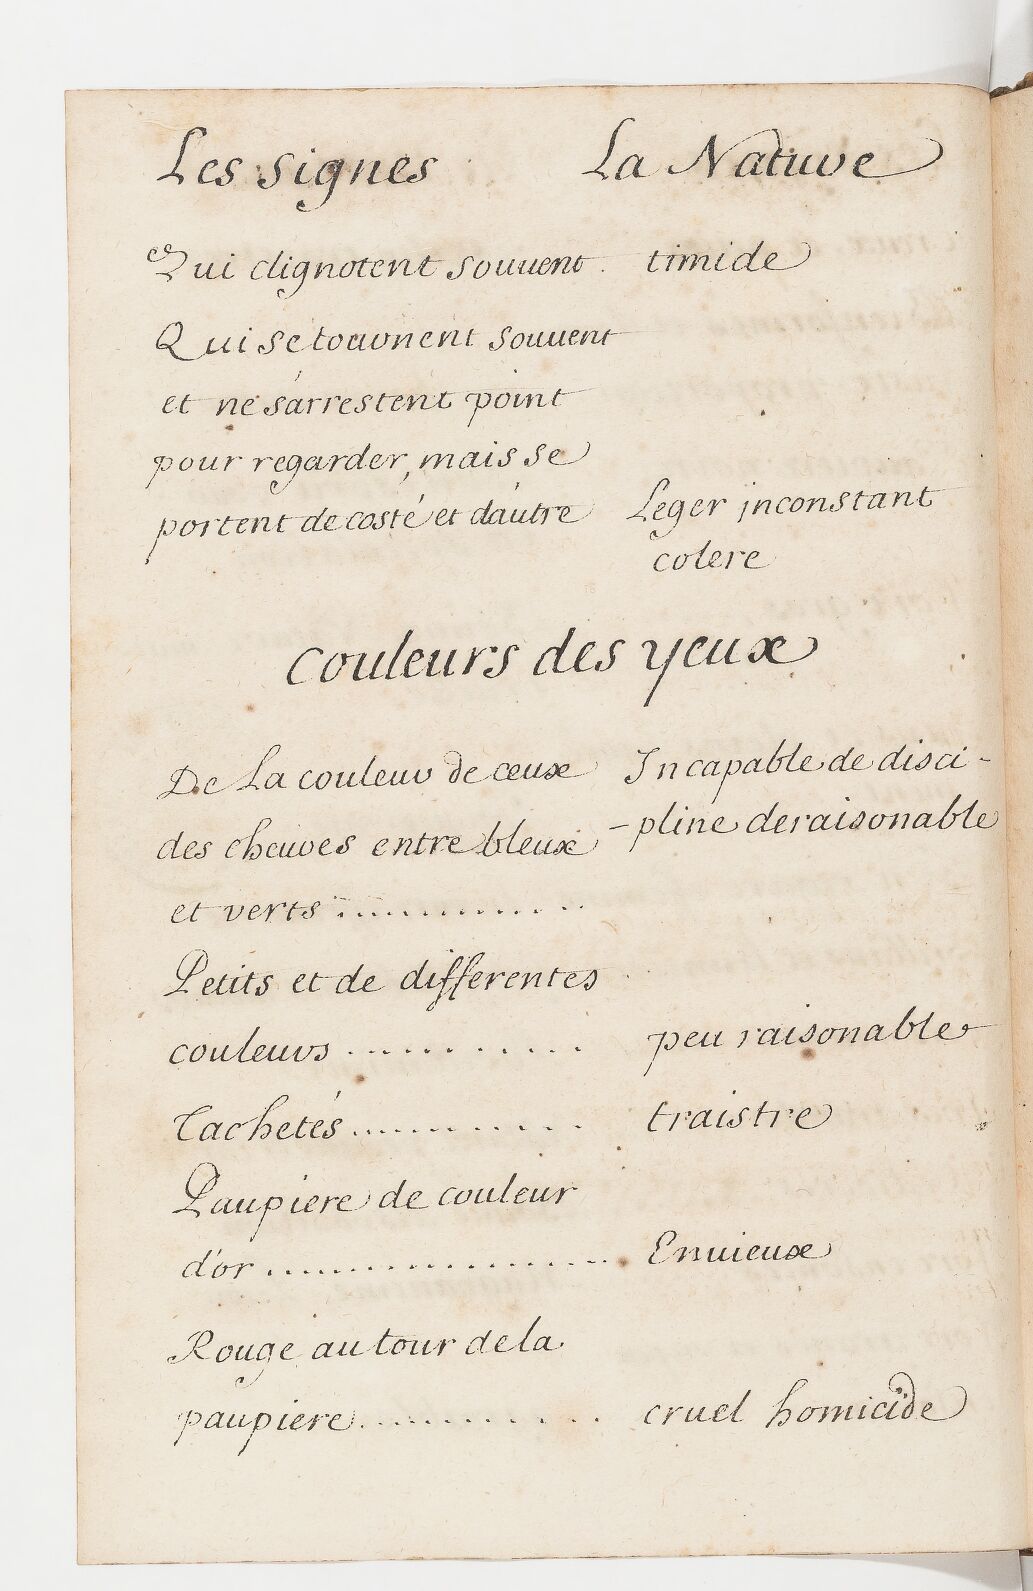 Les signes La Nature
Qui clignotent souuent. timide
Qui se tournent souuent
et ne s'arrestent point
pour regarder, mais se
portent de costé et d'autre Leger inconstant
colere
Couleurs des yeux
De La couleur de ceux Incapable de disci-
des cheures entre bleux -pline deraisonable
et verts ..............
Petits et de differentes
couleurs .......... peu raisonable
Tachetés .......... traistre
Paupiere de couleur
d'or .................. Enuieux
Rouge autour de la
paupiere .......... cruel homicide